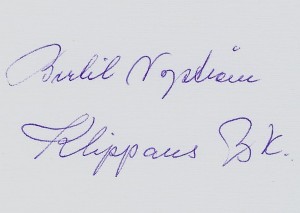 Bertil Nyström
Klippans BK.